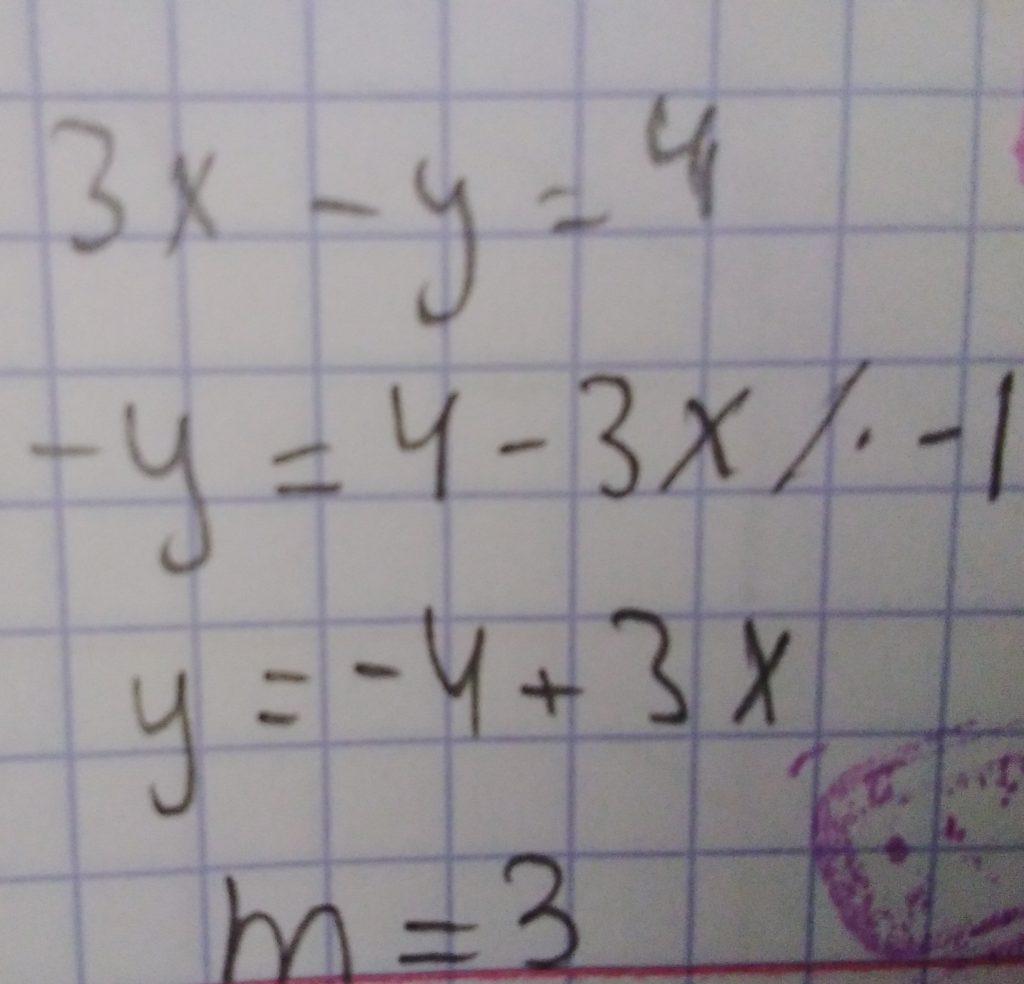 3x - y = 4
-y = 4 - 3x / · -1
y = -4 + 3x
m = 3